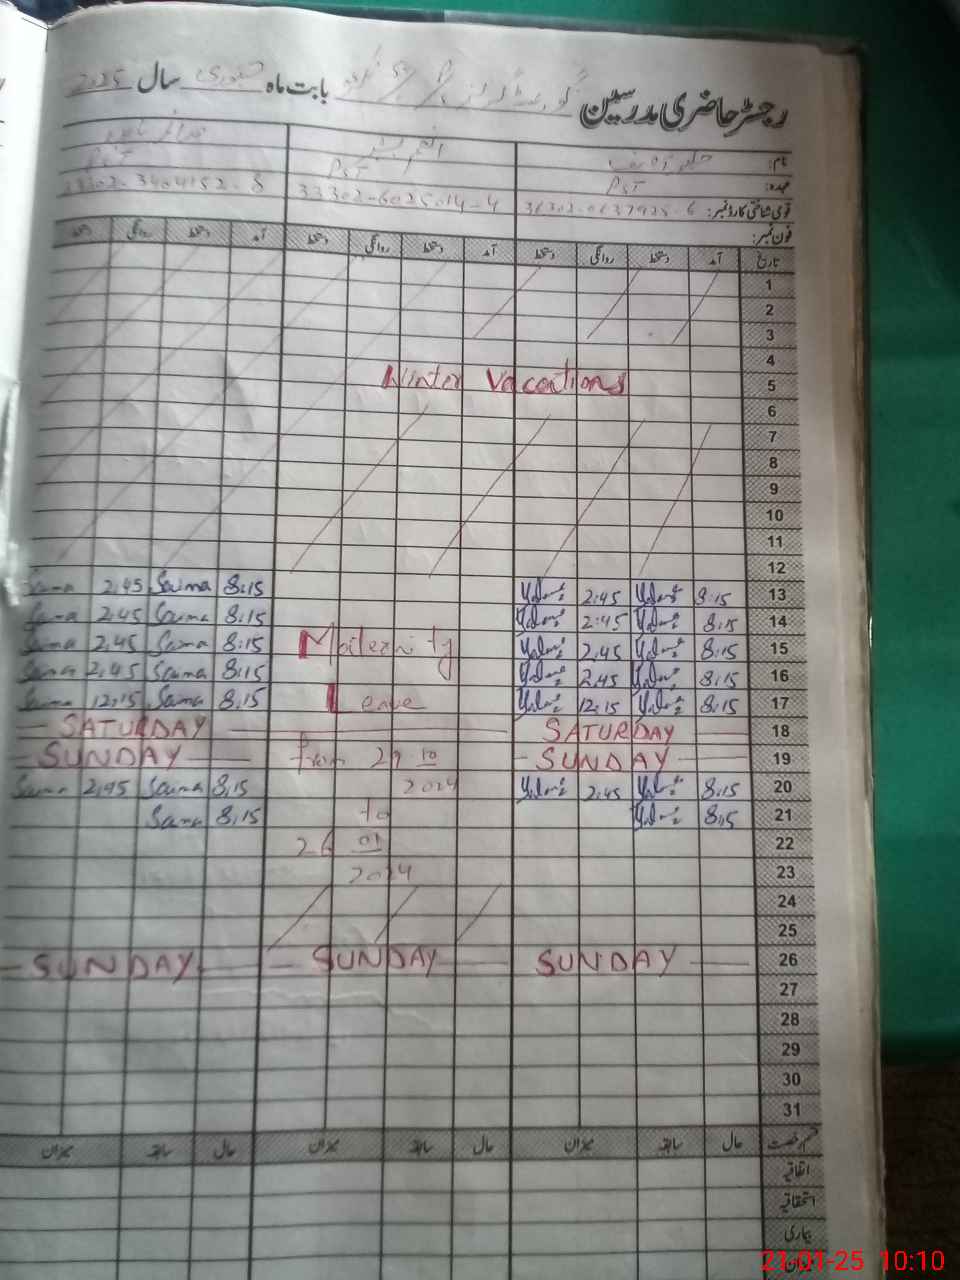 رجسٹر حاضری مدرسین گورنمنٹ گرلز بابت ماہ جنوری سال 2025
نام:
عہدہ: PST PST PST
قومی شناختی کارڈ نمبر: 36302-0637925-6 33302-6025014-4 33302-3404152-8
فون نمبر:
تاریخ آمد دستخط روانگی دستخط آمد دستخط روانگی دستخط آمد دستخط روانگی دستخط
1
2
3
4
Winter Vacations 5
6
7
8
9
10
11
12
Saima 2:45 Saima 8:15 2:45 8:15 13
Saima 2:45 Saima 8:15 2:45 8:15 14
Saima 2:45 Saima 8:15 Maternity 2:45 8:15 15
Saima 2:45 Saima 8:15 2:45 8:15 16
Saima 12:15 Saima 8:15 Leave 12:15 8:15 17
SATURDAY SATURDAY 18
SUNDAY from 29 10 SUNDAY 19
Saima 2:45 Saima 8:15 2024 2:45 8:15 20
Saima 8:15 to 8:15 21
26 01 22
2024 23
24
25
SUNDAY SUNDAY SUNDAY 26
27
28
29
30
31
قسم رخصت حال سابقہ میزان حال سابقہ میزان حال سابقہ میزان
اتفاقیہ
استحقاقیہ
بیماری
21-01-25 10:10